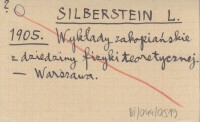 ?
SILBERSTEIN L.
1905. Wykłady zakopiańskie
z dziedziny fizyki teoretycznej.
— Warszawa.